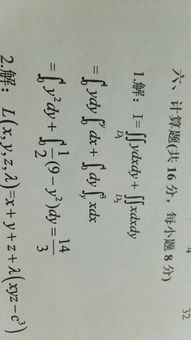 4
32
六、计算题(共 16 分，每小题 8 分)
1.解： I=∬ydxdy+∬xdxdy
D₁ D₂
=∫ydy∫dx+∫dy∫xdx
=∫y²dy+∫½(9−y²)dy=14/3
2.解： L(x,y,z,λ)=x+y+z+λ(xyz−c³)